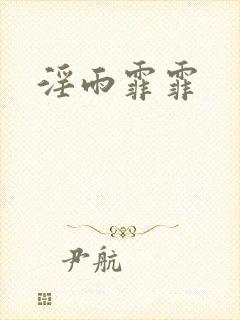 淫雨霏霏
尹航